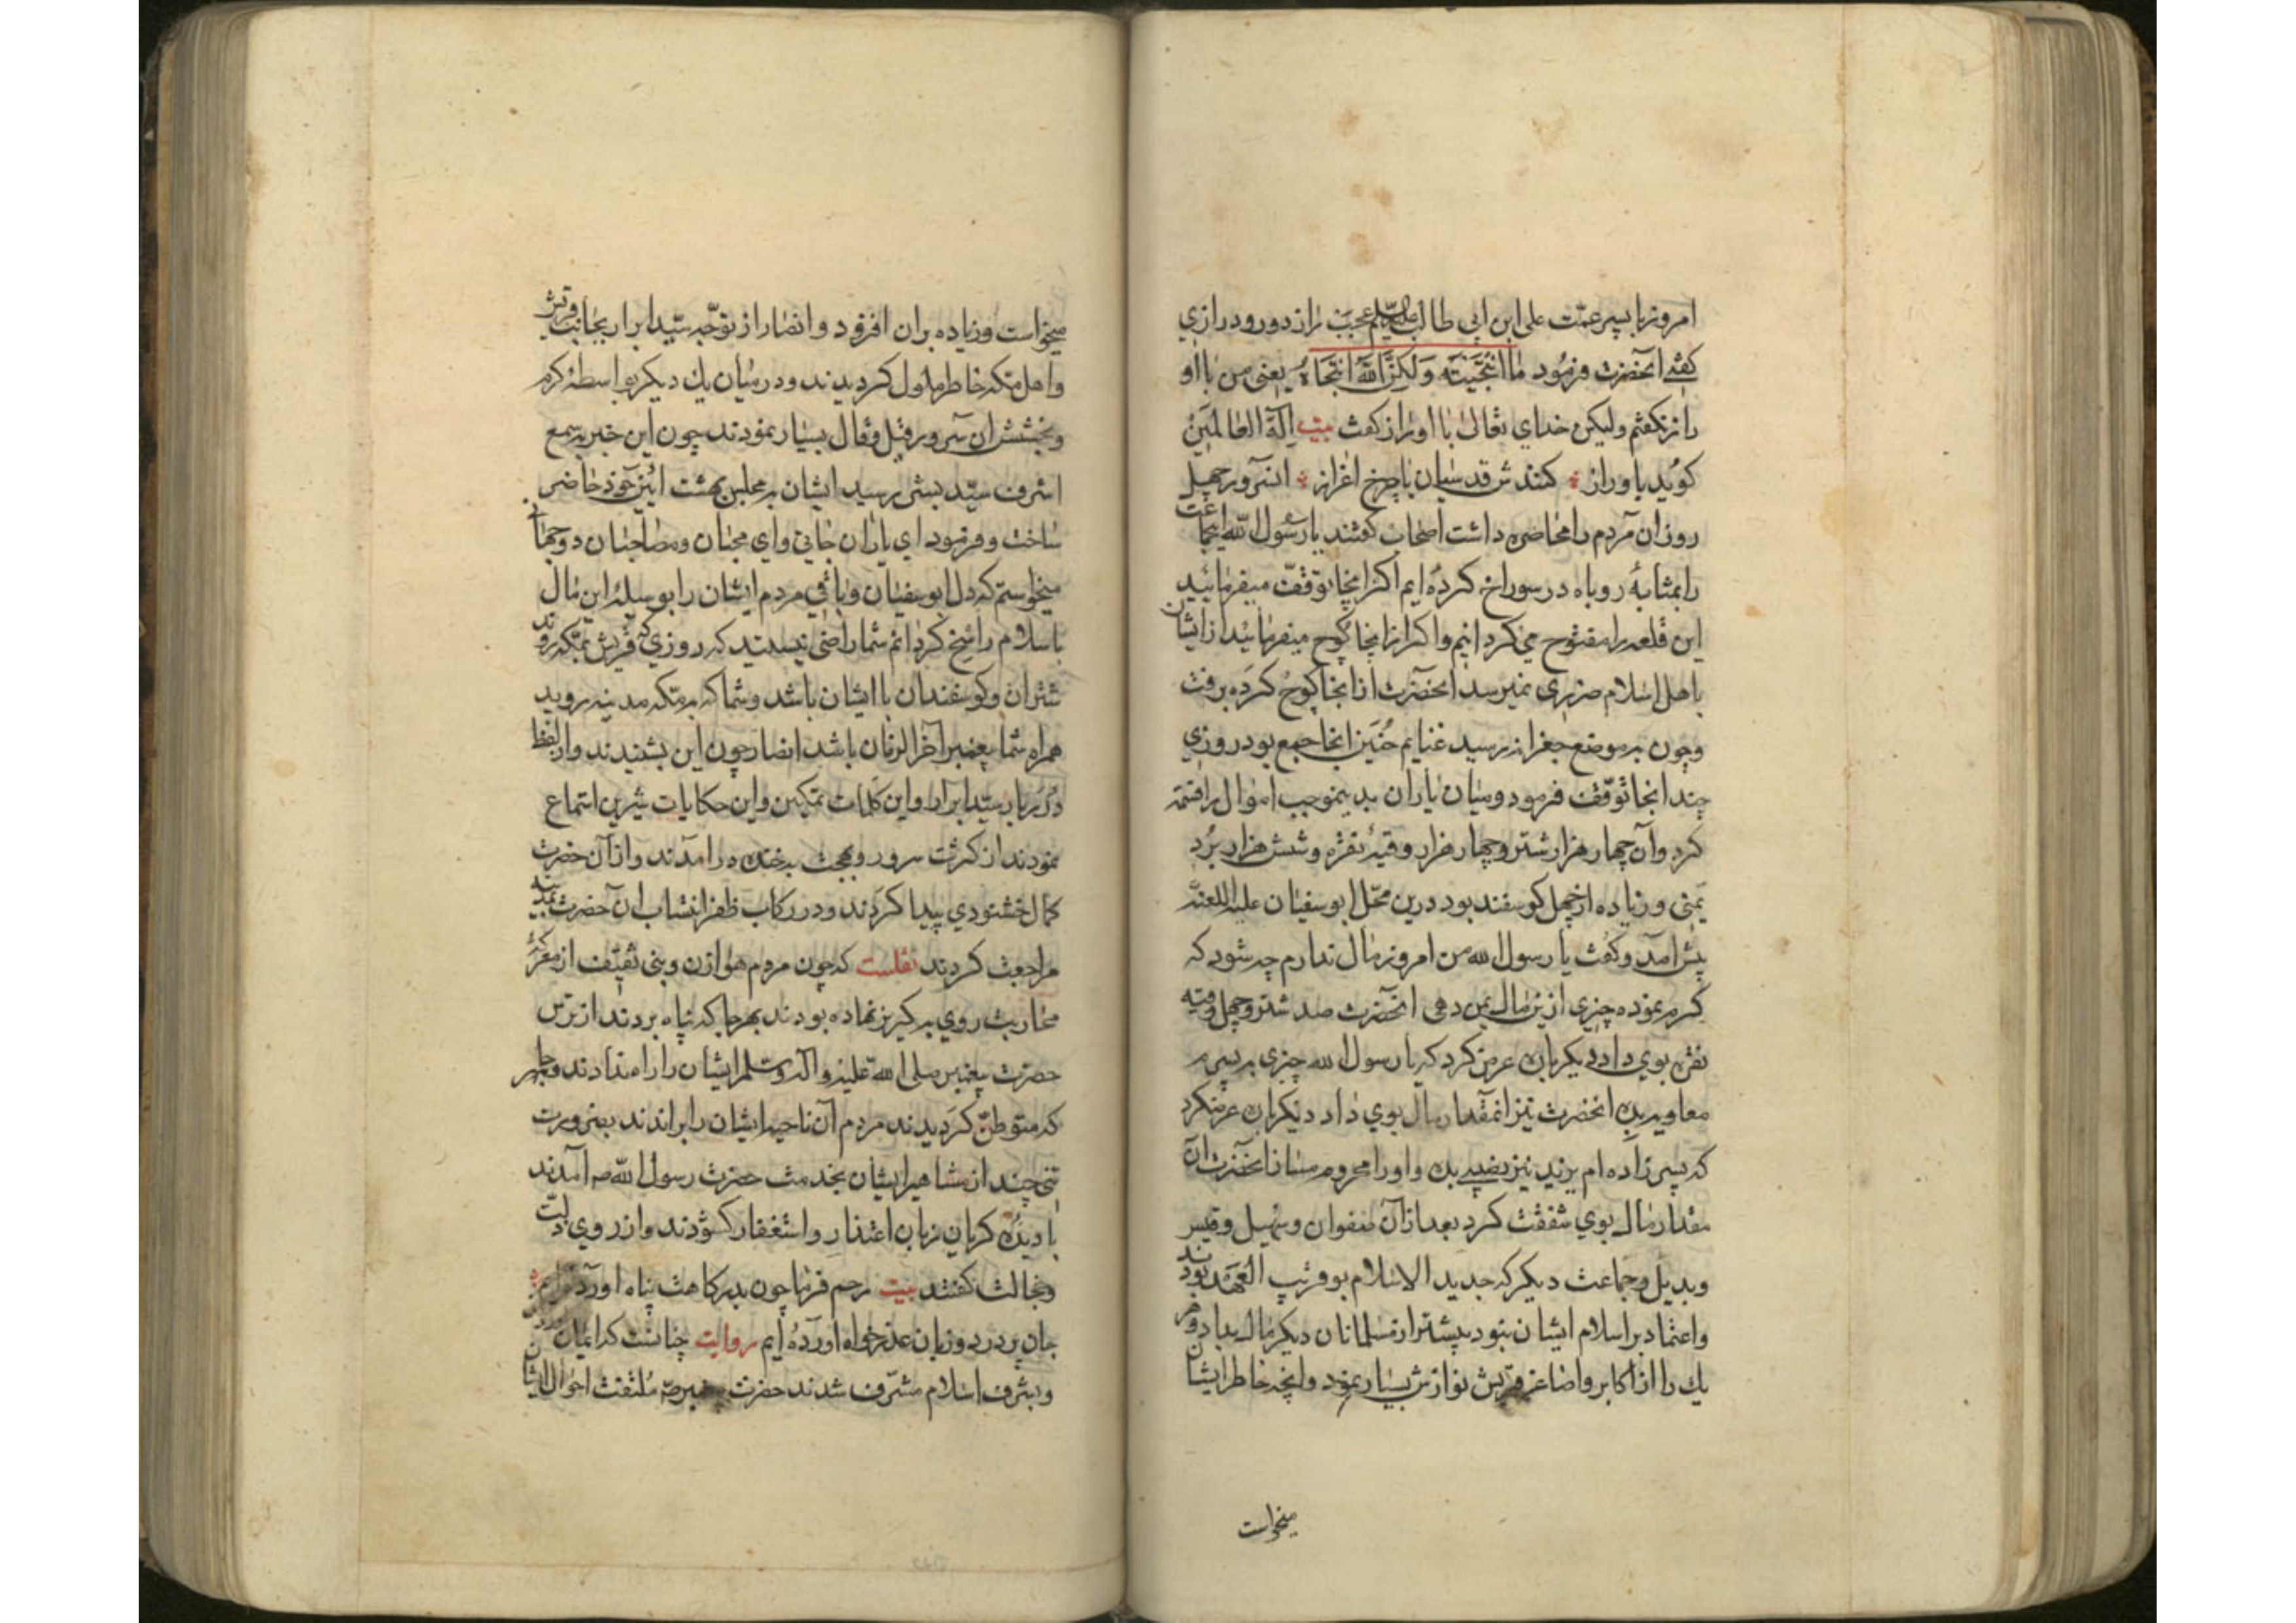 امروز با پسر عمّت علی ابن ابی طالب علیه السلم عجبت راز دور و درازی
گفتی آنحضرت فرمُود مٰا انْتَجَیتَه وَلٰکِنَّ اللّٰهَ انْتَجَاهُ یعنی من با او
راز نکفتم ولیکن خدای تعٰالیٰ بٰا او رٰاز کفت بیت اِلٰهَ العٰالمَینْ
کوُید با و راز کنندش قدسیان با چرخ اعزاز انسرور چهل
روز ان مردم را محٰاصره داشت اصحٰاب کفتند یا رسُول اللّه اینجماعت
را بمثابهٔ روباه در سوراخ کردهٔ ایم اکر اینجا توقفّ میفرمٰائید
این قلعه را مفتوح می کردانیم واکر از اینجا کوُچ میفرمٰائید از ایشان
باهل اسلام ضرری نمیرسد آنحضرت از اینجا کوُچ کرده برفت
و چون به موضع جعرانه رسید غنایم حُنَین انجا جمع بود روزی
چند انجا توّقف فرمود و میٰان یٰاران بدینموجب امٰوال را قسمة
کرد و آن چهار هزار شتر و چهار هزار وقیهٔ نقره و شش هزار بُرْد
یمَنی و زیٰاده از چهل کوسفند بود درین محّل ابو سفیٰان علیه اللعنة
پیش امد و کفُت یا رسول الله من امروز مال ندارم چه شود که
کرم نموده چیزی ازین مٰال بمن دهی انحضرت صد شتر و چهل وقیه
نقره بوی داد دیکر باره عرض کرد که یا رسول الله چیزی به پسرم
معاویه بده انحضرت نیز انمقدار مال بوی دٰاد دیکر باره عرض کرد
که پسر زاده ام یزید نیز نصیبی بده و او را محروم مساز انحضرت آن
مقدار مٰال بوی شفقت کرد بعد از آن صفوان و سهیل و قیس
و بدیل و جماعت دیکر که جدید الاسلام بو قریب العَهْد بودند
واعتماد بر اسلام ایشان نبود بیشتر از مسلمانان دیکر مٰال بداد و هر
یك را از اکابر و اصٰاغر قریش نوازش بسیار نمود وانچه خاطر ایشان
میخواست
میخواست و زیٰاده بران افزود و انصٰار از توجّه سیّد ابرار بجٰانب قریش
و اهل مکه خاطر ملول کردیدند و در میٰان یك دیکر بو اسطهٔ کرم
و بخشش ان سرور قیل و قٰال بسیٰار نمودند چون این خبر بسمع
اشرف سیّد بشر رسید ایشان به مجلس بهشت ائین خود حٰاضر
سٰاخت و فرمود ای یاران جٰانی وای محبٰان و مصٰاحبٰان دو جهٰانی
میخواستم که دل ابو سفیٰان و بٰاقی مردم ایشان را بو سیلهٔ این مٰال
باسلام راسخ کردٰانم شمٰا راضی نیستید که روزی که قریش بمکه روند
شتران و کوسفندان با ایشان باشد و شما که به مکه مدینه روید
همراه شما پیغمبر آخر الزمٰان باشد انصٰار چون این بشنیدند واز لفظ
دُرَر بار سیّد ابرار و این کَلمٰات نمکین و این حکایات شیرین استماع
نمودند از کثرت سرور و بهجت بخنده درامدند و از آن حضرت
کمٰال خشنودی پیدا کردند و در رکاب ظفر انتساب ان حضرت بمدینه
مراجعت کردند نقلست که چون مردم هوٰازن و بنی ثقیف از معرکهٔ
محٰاربت روی به کریز نهاده بودند بهر جا که پنٰاه بردند از ترس
حضرت پیغمبر صلی الله علیه و آله و سلم ایشان را راه ندادند و بهر جا
که متوطنّ کردیدند مردم آن ناحیه ایشان را براندند بضرورت
تنی چند از مشٰاهیر ایشان بخدمت حضرت رسول اللّه ص آمدند
با دیدهٔ کریان زبان اعتذار و استغفار کشودند و از روی ذلّت
و خجالت کفتند بیت رحم فرمٰا چون بدرکاهت پناه آورده ایم
جان پر درد و زبان عذر خواه آوردهٔ ایم روایت چنانست که ایمان
و بشرف اسلام مشرّف شدند حضرت پیغمبر ص مُلتفت احوٰال ایشان